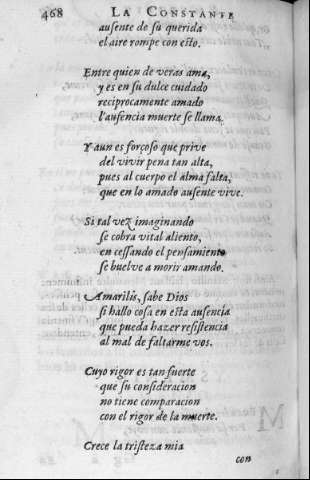 468 LA CONSTANTE
ausente de su querida
el aire rompe con esto.
Entre quien de veras ama,
y es en su dulce cuidado
reciprocamente amado
l'ausencia muerte se llama.
Y aun es forçoso que prive
del vivir pena tan alta,
pues al cuerpo el alma falta,
que en lo amado ausente vive.
Si tal vez imaginando
se cobra vital aliento,
en cessando el pensamiento
se buelve a morir amando.
Amarilis, sabe Dios
si hallo cosa en esta ausencia
que pueda hazer resistencia
al mal de faltarme vos.
Cuyo rigor es tan fuerte
que su consideracion
no tiene comparacion
con el rigor de la muerte.
Crece la tristeza mia
con